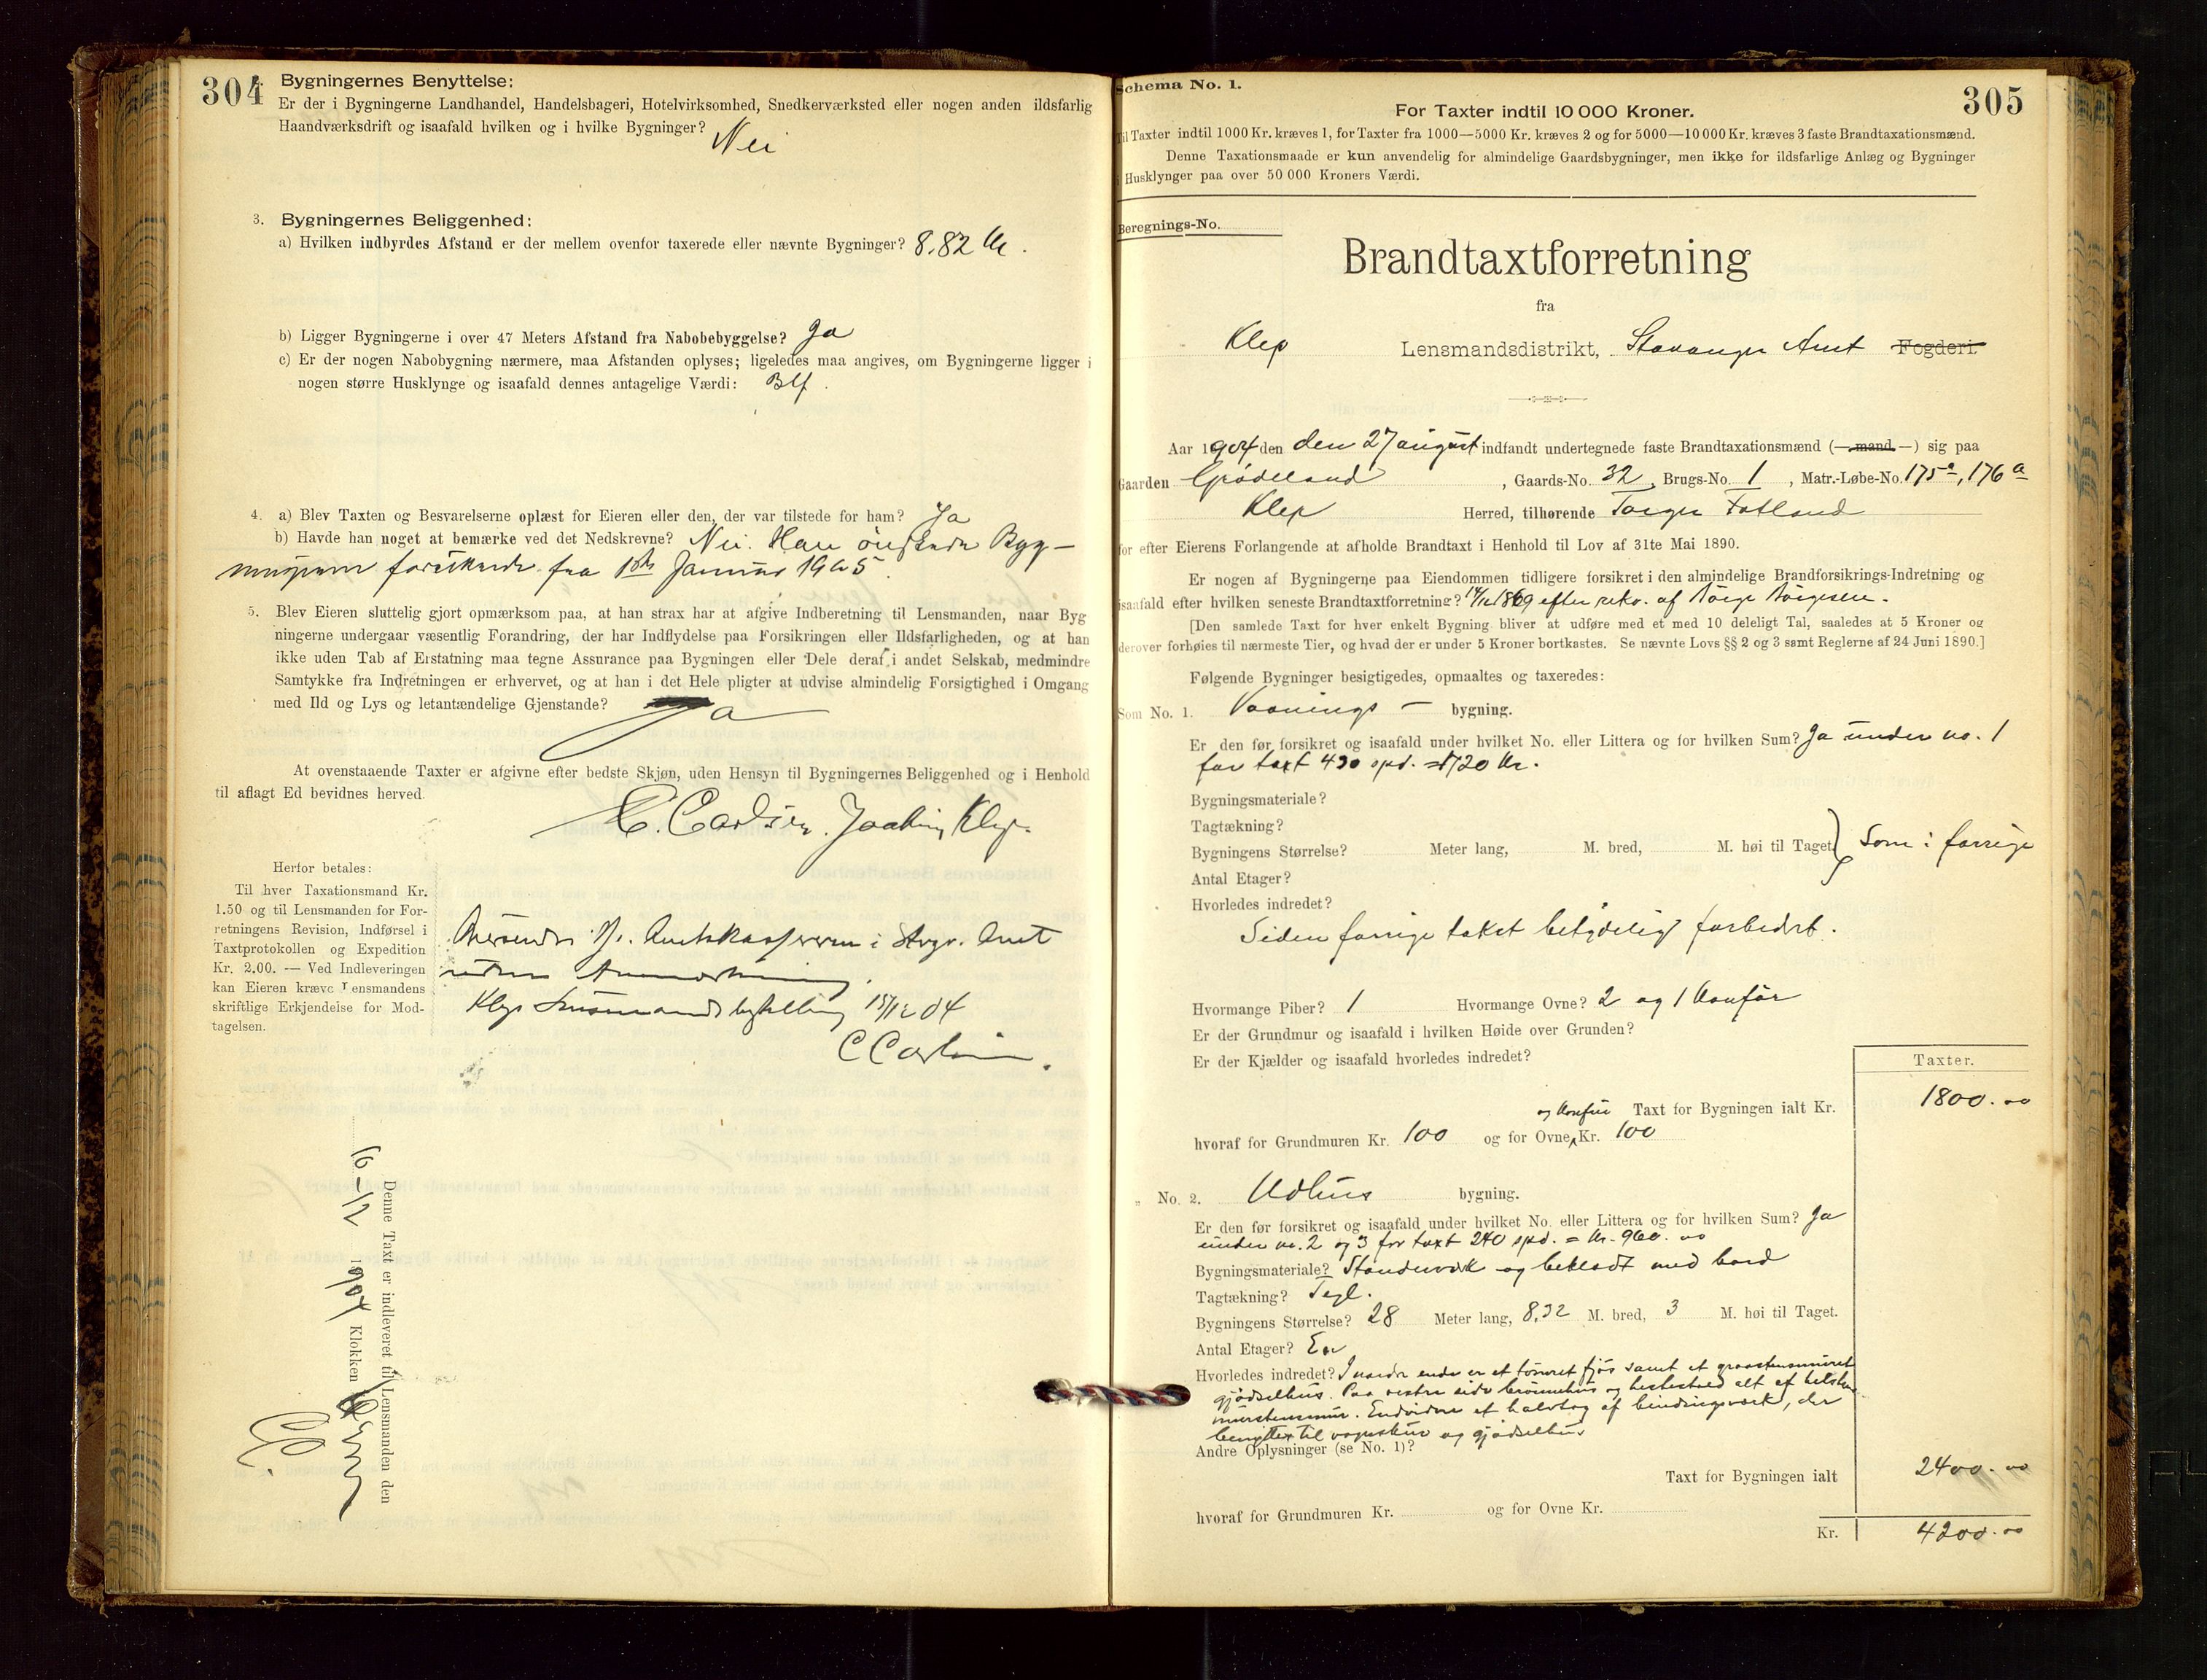 304
Bygningernes Benyttelse:
Er der i Bygningerne Landhandel, Handelsbageri, Hotelvirksomhed, Snedkerværksted eller nogen anden ildsfarlig
Haandværksdrift og isaafald hvilken og i hvilke Bygninger? Nei
3. Bygningernes Beliggenhed:
a) Hvilken indbyrdes Afstand er der mellem ovenfor taxerede eller nævnte Bygninger? 8.82 M.
b) Ligger Bygningerne i over 47 Meters Afstand fra Nabobebyggelse? Ja
c) Er der nogen Nabobygning nærmere, maa Afstanden oplyses; ligeledes maa angives, om Bygningerne ligger i
nogen større Husklynge og isaafald dennes antagelige Værdi:
4. a) Blev Taxten og Besvarelserne oplæst for Eieren eller den, der var tilstede for ham? Ja
b) Havde han noget at bemærke ved det Nedskrevne? Nei. Han ønskede Byg-
ningerne forsikrede fra 1ste Januar 1905.
5. Blev Eieren sluttelig gjort opmærksom paa, at han strax har at afgive Indberetning til Lensmanden, naar Byg
ningerne undergaar væsentlig Forandring, der har Indflydelse paa Forsikringen eller Ildsfarligheden, og at han
ikke uden Tab af Erstatning maa tegne Assurance paa Bygningen eller Dele deraf i andet Selskab, medmindre
Samtykke fra Indretningen er erhvervet, og at han i det Hele pligter at udvise almindelig Forsigtighed i Omgang
med Ild og Lys og letantændelige Gjenstande? Ja
At ovenstaaende Taxter er afgivne efter bedste Skjøn, uden Hensyn til Bygningernes Beliggenhed og i Henhold
til aflagt Ed bevidnes herved.
C. Carlsen. Joakim Klep.
Herfor betales:
Til hver Taxationsmand Kr.
1.50 og til Lensmanden for For-
retningens Revision, Indførsel i
Taxtprotokollen og Expedition
Kr. 2.00. — Ved Indleveringen
kan Eieren kræve Lensmandens
skriftlige Erkjendelse for Mod-
tagelsen.
Oversendes Hr. Amtskassereren i Stvgr. Amt
uden Anmærkning.
Klep Lensmandsbestilling 15/12 04
C Carlsen.
Denne Taxt er indleveret til Lensmanden den
16-12 1904 Klokken
Schema No. 1.
305
For Taxter indtil 10 000 Kroner.
Til Taxter indtil 1000 Kr. kræves 1, for Taxter fra 1000—5000 Kr. kræves 2 og for 5000—10 000 Kr. kræves 3 faste Brandtaxationsmænd.
Denne Taxationsmaade er kun anvendelig for almindelige Gaardsbygninger, men ikke for ildsfarlige Anlæg og Bygninger
i Husklynger paa over 50 000 Kroners Værdi.
Beregnings-No.
Brandtaxtforretning
fra
Klep Lensmandsdistrikt, Stavanger Amt Fogderi.
Aar 1904 den den 27 august indfandt undertegnede faste Brandtaxationsmænd (—mand—) sig paa
Gaarden Grødeland, Gaards-No. 32, Brugs-No. 1, Matr.-Løbe-No. 175a, 176a
Klep Herred, tilhørende Torger Fotland
for efter Eierens Forlangende at afholde Brandtaxt i Henhold til Lov af 31te Mai 1890.
Er nogen af Bygningerne paa Eiendommen tidligere forsikret i den almindelige Brandforsikrings-Indretning og
isaafald efter hvilken seneste Brandtaxtforretning? 14/12 1869 efter rekv. af Børge Børgesen.
[Den samlede Taxt for hver enkelt Bygning bliver at udføre med et med 10 deleligt Tal, saaledes at 5 Kroner og
derover forhøies til nærmeste Tier, og hvad der er under 5 Kroner bortkastes. Se nævnte Lovs §§ 2 og 3 samt Reglerne af 24 Juni 1890.]
Følgende Bygninger besigtigedes, opmaaltes og taxeredes:
Som No. 1. Vaanings- bygning.
Er den før forsikret og isaafald under hvilket No. eller Littera og for hvilken Sum? Ja under no. 1
for taxt 430 spd. = 1720 Kr.
Bygningsmateriale?
Tagtækning?
Bygningens Størrelse? Meter lang, M. bred, M. høi til Taget. Som i forrige
Antal Etager?
Hvorledes indredet?
Siden forrige takst betydelig forbedret.
Hvormange Piber? 1 Hvormange Ovne? 2 og 1 komfør
Er der Grundmur og isaafald i hvilken Høide over Grunden?
Er der Kjælder og isaafald hvorledes indredet?
Taxter.
og komfür Taxt for Bygningen ialt Kr. 1800.00
hvoraf for Grundmuren Kr. 100 og for Ovne Kr. 100
" No. 2. Udhus bygning.
Er den før forsikret og isaafald under hvilket No. eller Littera og for hvilken Sum? Ja
under no. 2 og 3 for taxt 240 spd. = Kr. 960.00
Bygningsmateriale? Stenderværk og beklædt med bord
Tagtækning? Tegl.
Bygningens Størrelse? 28 Meter lang, 8,32 M. bred, 3 M. høi til Taget.
Antal Etager? En
Hvorledes indredet? I nordre ende er et tømret fjøs samt et graastensmuret
gjødselhus. Paa vestre side brøndhus og hestestald alt af
murstensmur. Endvidere et halvtag af bindingsverk, der
benyttes til vognskur og gjødselhus
Andre Oplysninger (se No. 1)?
Taxt for Bygningen ialt 2400.00
hvoraf for Grundmuren Kr. og for Ovne Kr.
Kr. 4200.00